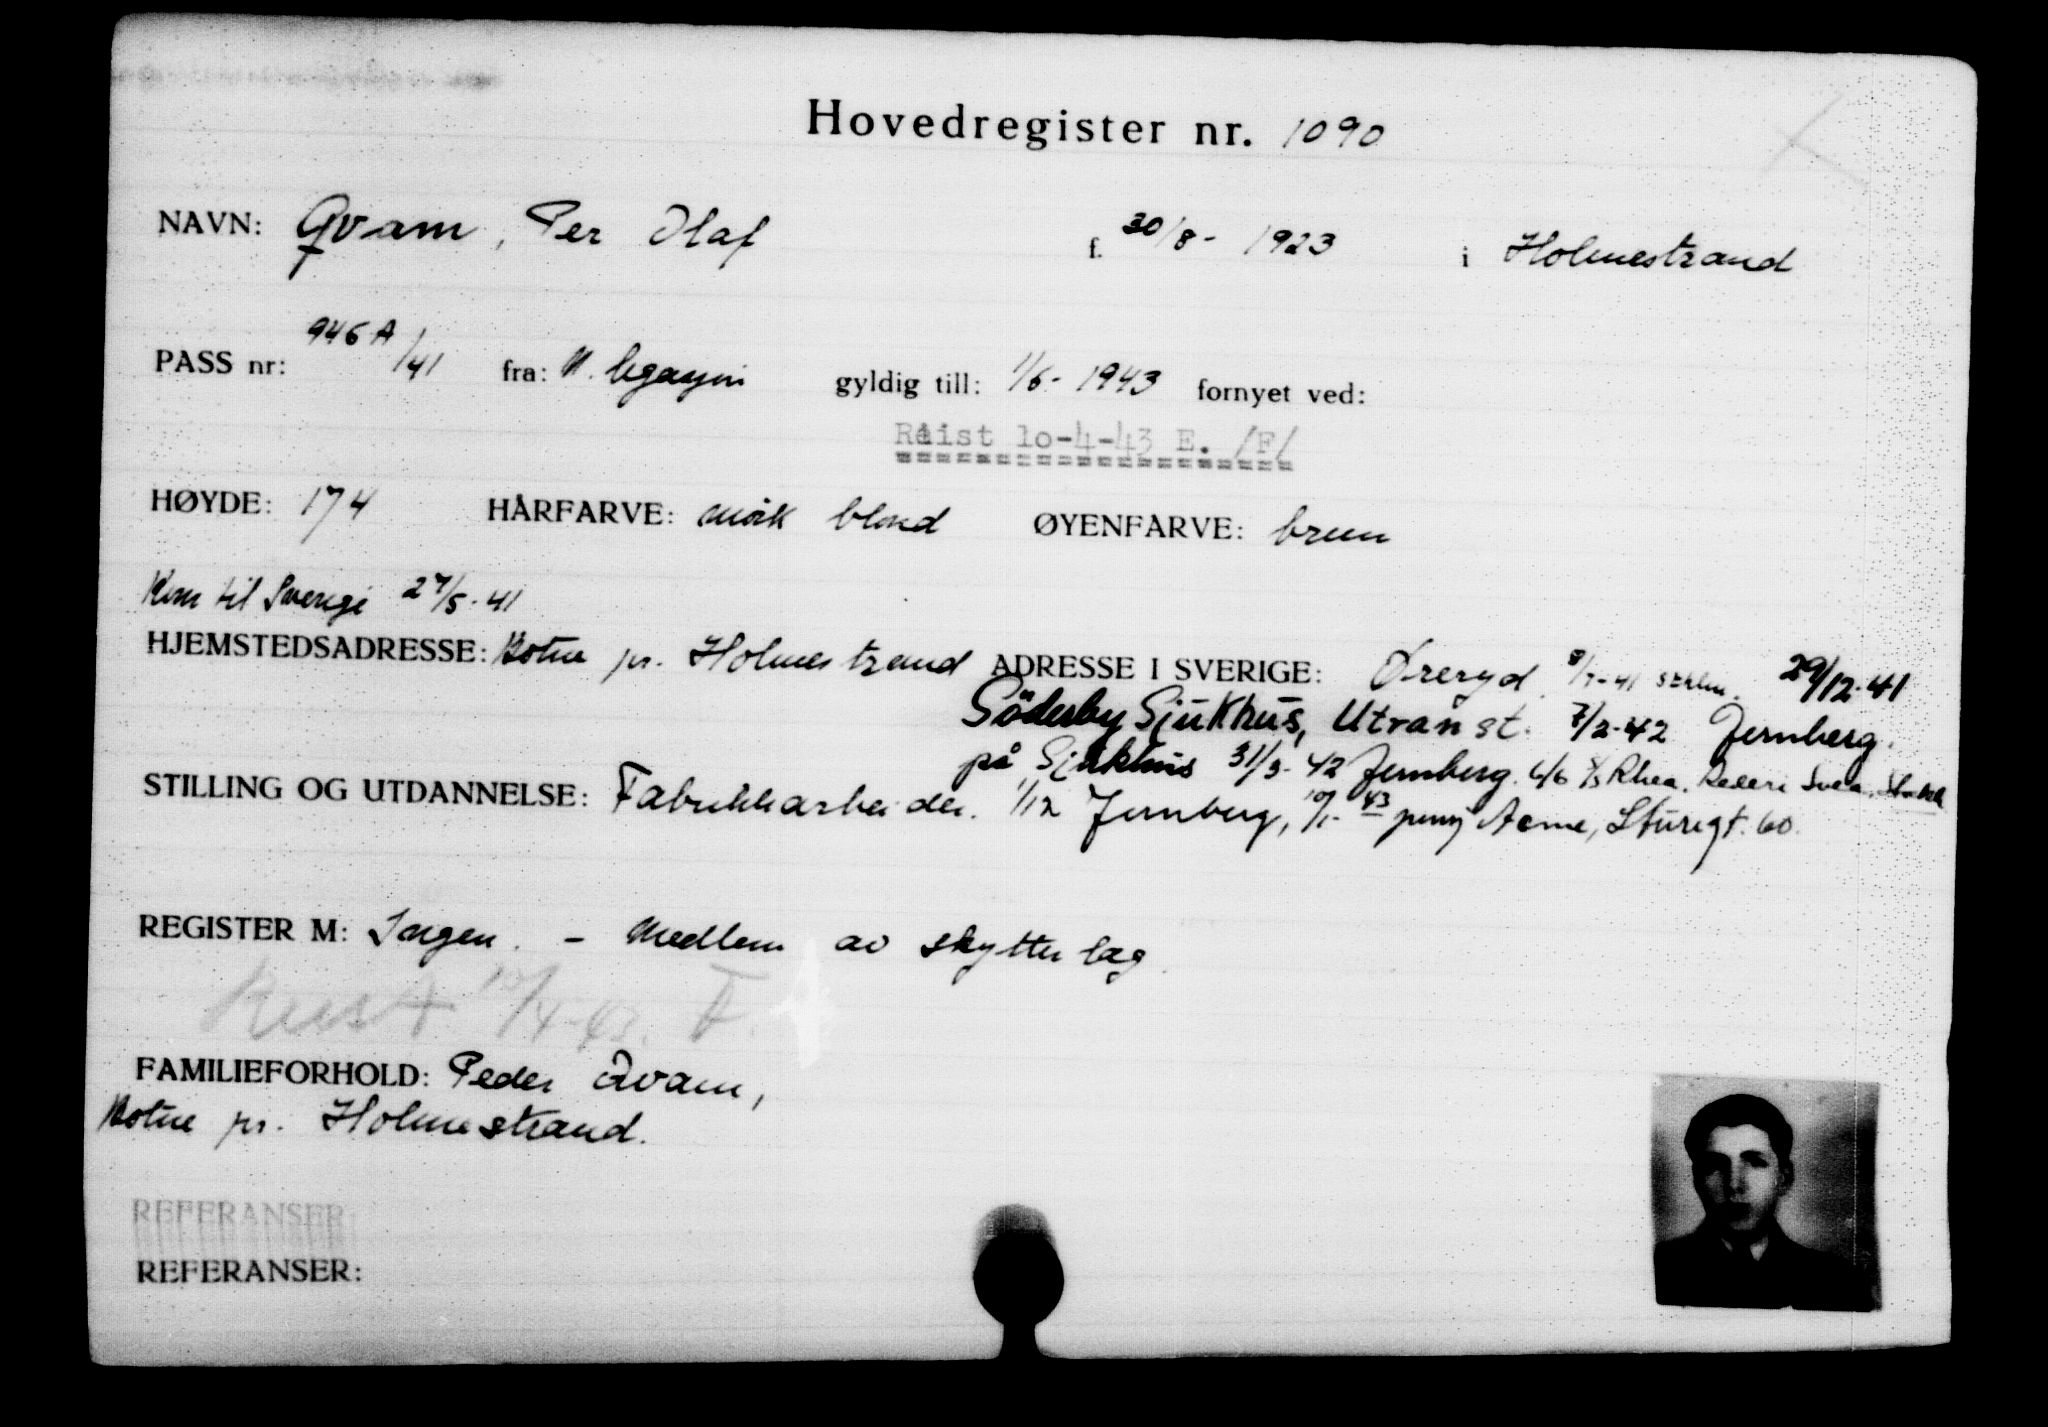 Hovedregister nr. 1090
NAVN: Qvam, Per Olaf f. 30/8- 1923 i Holmestrand
PASS nr: 946A/41 fra: gyldig till: 1/6- 1943 fornyet ved:
Reist 10-4-43 E. /F/
HØYDE: 174 HÅRFARVE: mørk blond ØYENFARVE: brun
Kom til Sverige 27/5-41
HJEMSTEDSADRESSE: Botne pr. Holmestrand ADRESSE I SVERIGE: Øreryd 8/7-41 29/12-41
Söderby Sjukhus, Utran st. 7/2-42 Jernberg.
på Sjukhus 31/3-42 Jernberg. 6/6 Rhea. Rederi Svea.
STILLING OG UTDANNELSE: Fabrikkarbeider. 1/12 Jernberg, 10/1-43 Acme, Sturegt. 60.
REGISTER M: Ingen. - Medlem av skytterlag.
Reist 10/4-43. F.
FAMILIEFORHOLD: Peder Qvam,
Botne pr. Holmestrand.
REFERANSER
REFERANSER: